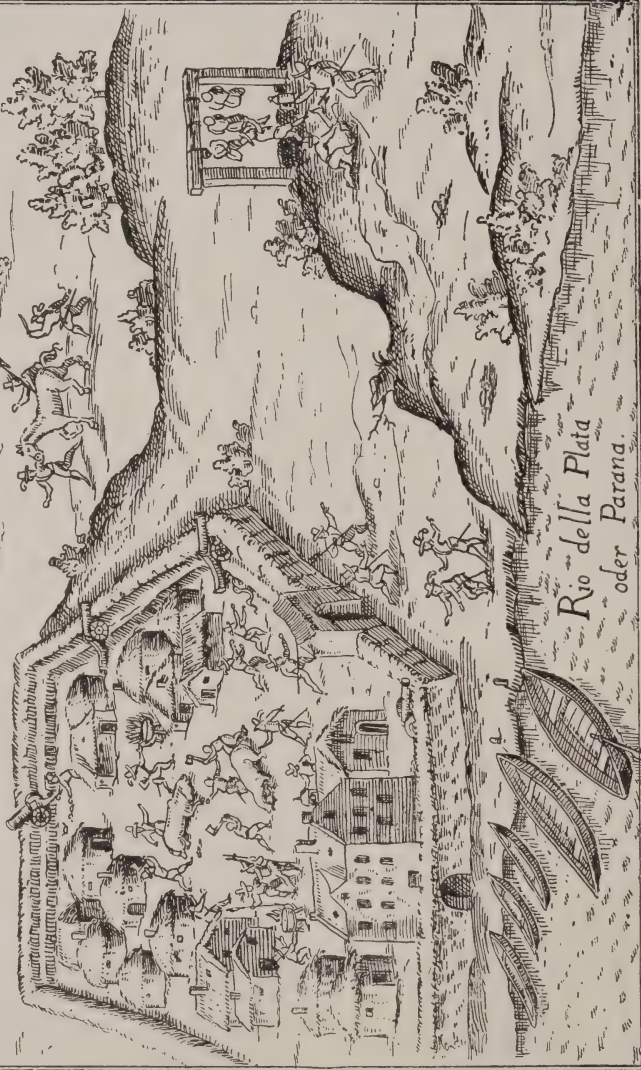 Rio della Plata
oder Parana.